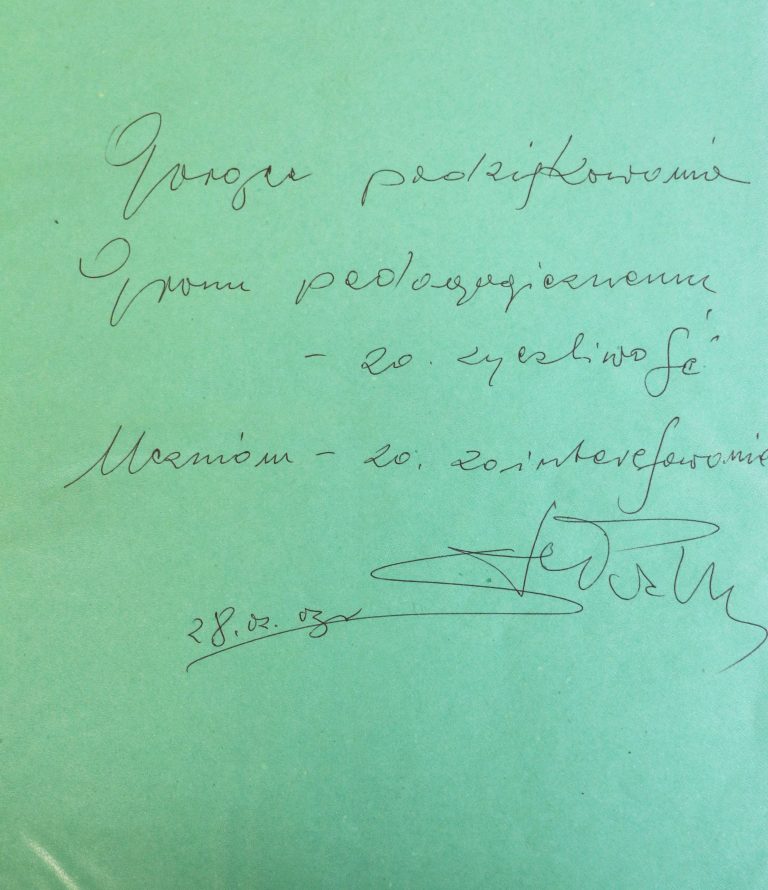 Gorące podziękowania
Gronu pedagogicznemu
- za życzliwość
Uczniom - za zainteresowanie
28.02.03r